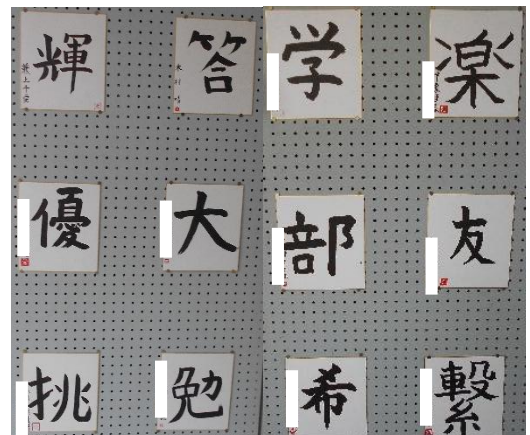 輝 答 学 楽
優 大 部 友
挑 勉 希 繋